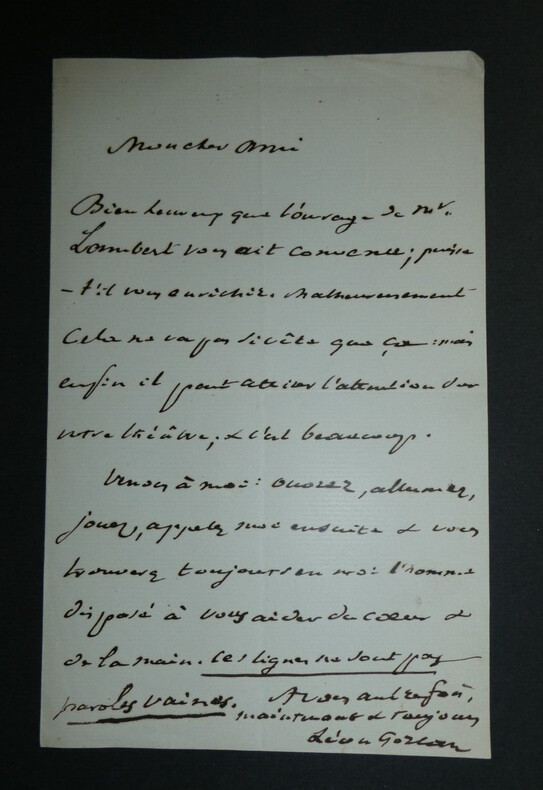 Mon cher Ami
Bien heureux que l'ouvrage de Mr.
Lambert vous ait convenu; puisse
-t'il vous enrichir. Malheureusement
Cela ne va pas si vite que ça: mais
enfin il peut attirer l'attention sur
votre théâtre, & c'est beaucoup.
Venons à moi: ouvrez, allumez,
jouez, appelez moi ensuite & vous
trouverez toujours en moi l'homme
disposé à vous aider du cœur &
de la main. Ces lignes ne sont pas
paroles vaines. A vous autrefois,
maintenant & toujours
Léon Gozlan